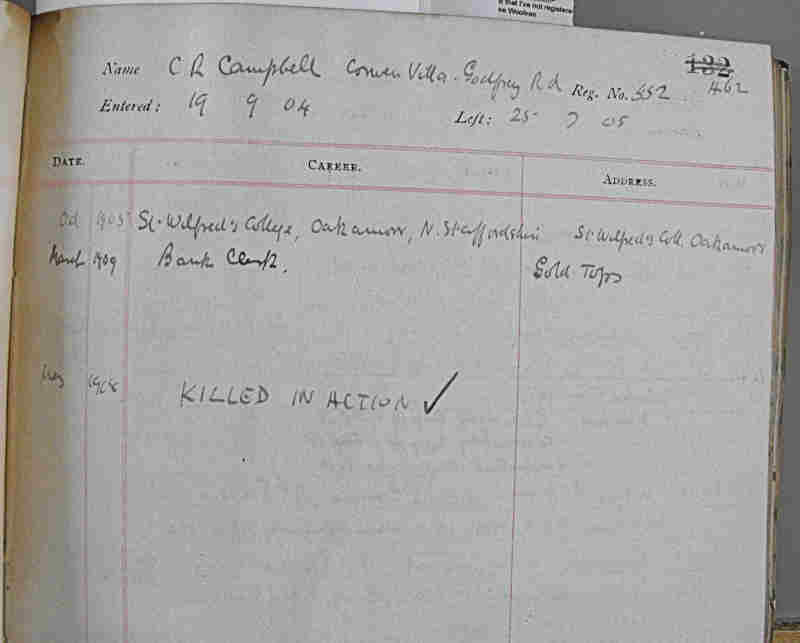 that I've not registere
Name C R Campbell Conwen Villa. Godfrey Rd Reg. No. 552 132 462
Entered: 19 9 04 Left: 25 7 05
DATE. CAREER. ADDRESS.
Oct 1905 St. Wilfred's College, Oakamoor, N. Staffordshire St. Wilfred's Coll. Oakamoor
March 1909 Bank Clerk. Gold Tops
1918 KILLED IN ACTION ✓